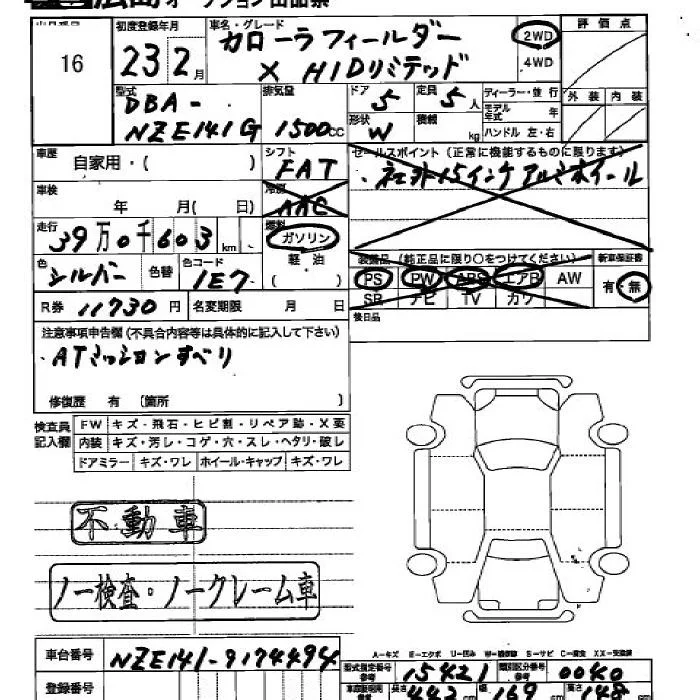 広島 オークション 出品票
16
初度登録年月
23 2月
車名・グレード
カローラフィールダー
X HIDリミテッド
2WD
4WD
評価点
外装 内装
型式
DBA-
NZE141G
排気量
1500cc
ドア 5
定員 5人
形状 W
積載 kg
ディーラー・並行
モデル年式 年
ハンドル 左・右
車歴
自家用・( )
シフト
FAT
セールスポイント(正常に機能するものに限ります)
・社外15インチアルミホイール
車検
年 月( 日)
冷房
AAC
走行
39万0千603km
燃料
ガソリン
軽油
( )
色
シルバー
色替
色コード
1E7
装備品(純正品に限り○をつけてください)
PS PW ABS エアB AW
SR ナビ TV カワ
新車保証書
有・無
R券 11730円
名変期限 月 日
後日品
注意事項申告欄(不具合内容等は具体的に記入して下さい)
・ATミッションすべり
修復歴 有 (箇所
検査員記入欄
FW キズ・飛石・ヒビ割・リペア跡・X要
内装 キズ・汚レ・コゲ・穴・スレ・ヘタリ・破レ
ドアミラー キズ・ワレ ホイール・キャップ キズ・ワレ
不動車
ノー検査・ノークレーム車
A-キズ E-エクボ U-凹み S-サビ
車台番号
NZE141-9174494
型式指定番号参考 15421
類別区分番号参考 0040
登録番号
長さ 442cm 幅 169cm 高さ 148